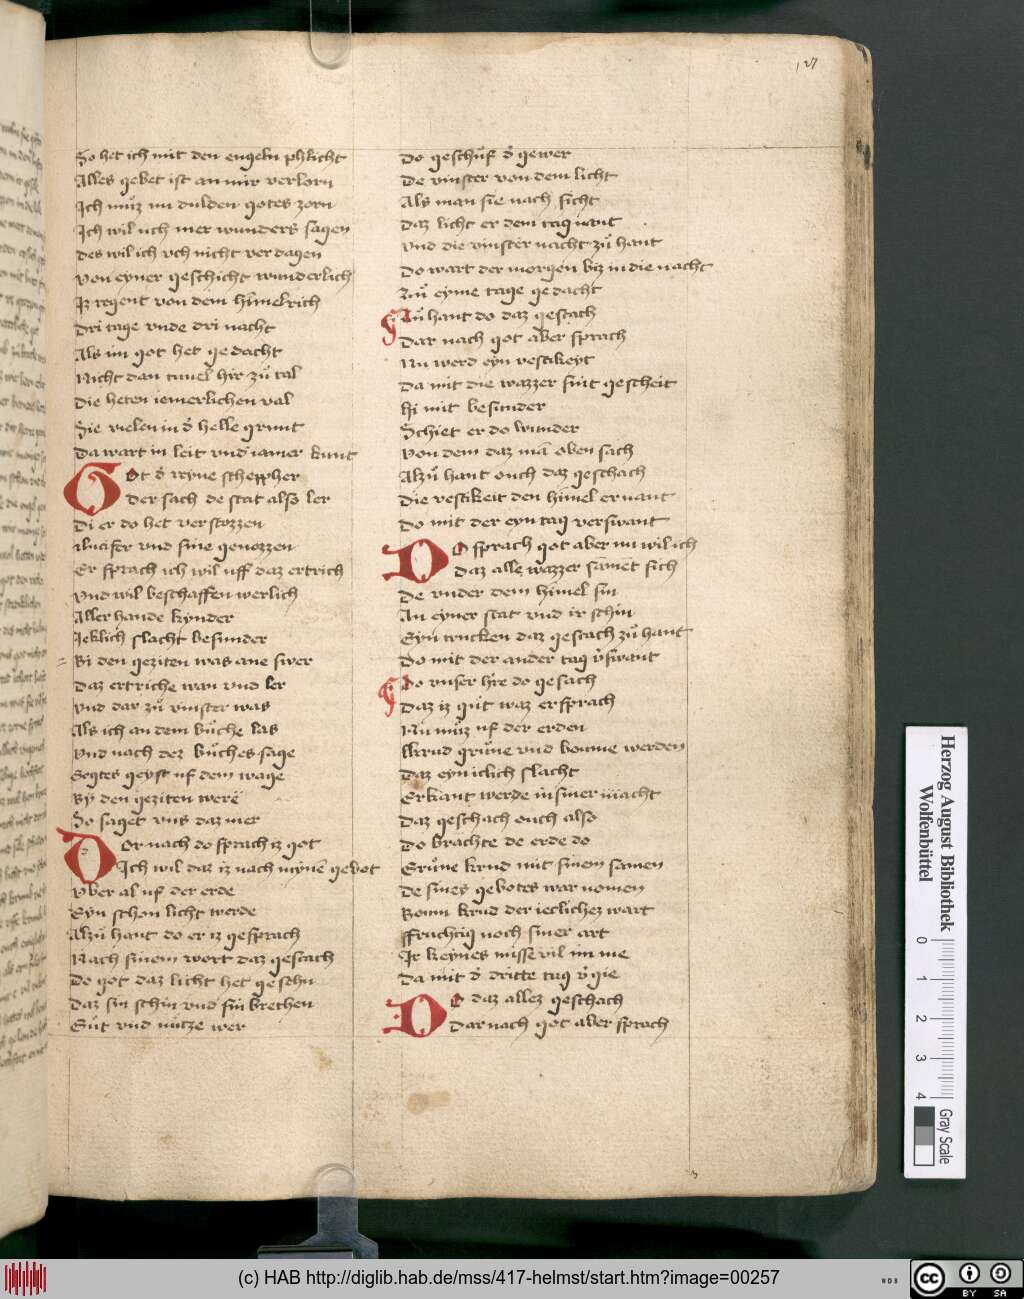 127
So het ich mit den engeln phlicht
Alles gebet ist an mir verlorn
Ich můz nu dulden gotes zorn
Ich wil uch mer wunders sagen
Des wil ich uch nicht verdagen
Von eyner geschicht wunderlich
Iz regent von dem himelrich
Dri tage vnde dri nacht
Als im got het gedacht
Nicht dan tuuel hyr zů tal
Die heten iemerlichen val
Sie vielen in d' helle grunt
Da wart in leit vnd iamer kunt
Got d' reyne schepher
Der sach de stat also ler
Di er do het verstozzen
Lucifer vnd sine genozzen
Er sprach ich wil uff daz ertrich
Vnd wil beschaffen werlich
Aller hande kynder
Ieklich slacht besunder
Bi den geziten was ane swer
Daz ertriche wan vnd ler
Vnd dar zů vinster was
Als ich an dem bůche las
Vnd nach dez bůches sage
Gotes geyst uf dem wage
By den geziten were
So saget vns daz mer
Dor nach do sprach iz got
Ich wil daz iz nach myne gebot
Vber al uf der erde
Eyn schon licht werde
Alzů hant do er iz gesprach
Nach sinem wort daz geschach
Do got daz licht het gesehn
Daz sin schin vnd sin brehen
Gůt vnd nůtze wer
Do geschůf d' gewer
De vinster von dem licht
Als man sie noch sicht
Daz licht er dem tag nant
Vnd die vinster nacht zů hant
Do wart der morgen biz in die nacht
Zů eyme tage gedacht
Zů hant do daz geschach
Dar nach got aber sprach
Nu werd eyn vestikeyt
Da mit die wazzer sint gescheit
Hi mit besunder
Schiet er do wunder
Von dem daz ma oben sach
Alzů hant ouch daz geschach
Die vestikeit den himel er nant
Do mit der eyn tag verswant
Do sprach got aber nu wil ich
Daz alle wazzer samet sich
De vnder dem himel sin
An eyner stat vnd ir schin
Eyn trucken daz geschach zů hant
Do mit der ander tag v'swant
Do vnser h're do gesach
Daz iz gůt waz er sprach
Nu můz uf der erden
Krud grůne vnd boume werden
Daz eyn iclich slacht
Erkant werde in siner macht
Daz geschach ouch also
Do brachte de erde do
Grůne krud mit sinem samen
De sines gebotes war nomen
Boum krud der ieclichez wart
Fruchtig noch siner art
Ir keynes misse vil im nie
Da mit d' dritte tag v'gie
Do daz allez geschach
Dar nach got aber sprach
Herzog August Bibliothek
Wolfenbüttel
0 1 2 3 4
Gray Scale
(c) HAB http://diglib.hab.de/mss/417-helmst/start.htm?image=00257
WDB
cc BY SA